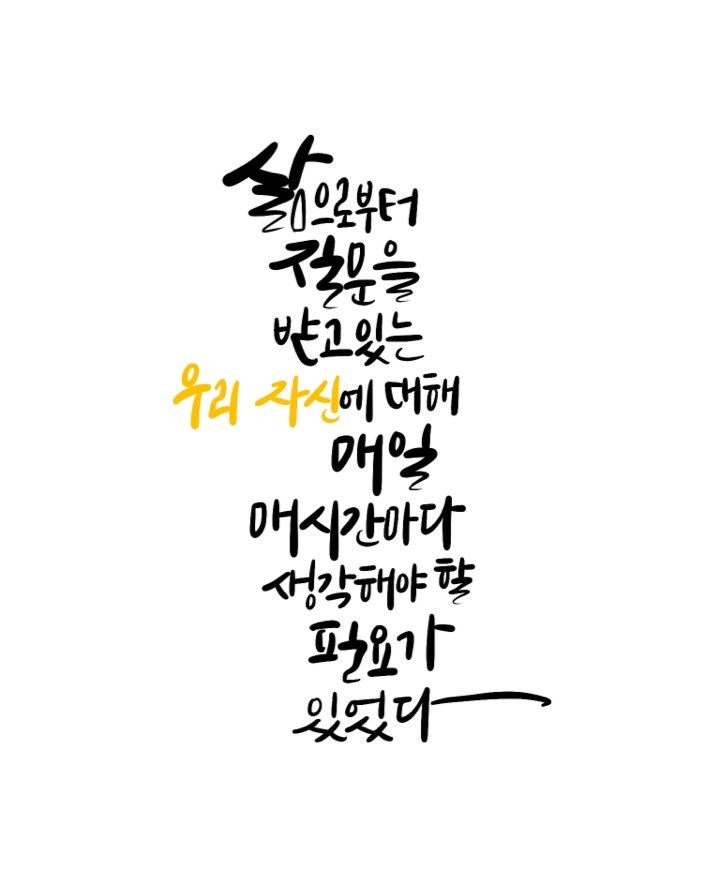 삶으로부터
질문을
받고있는
우리 자신에 대해
매일
매시간마다
생각해야 할
필요가
있었다